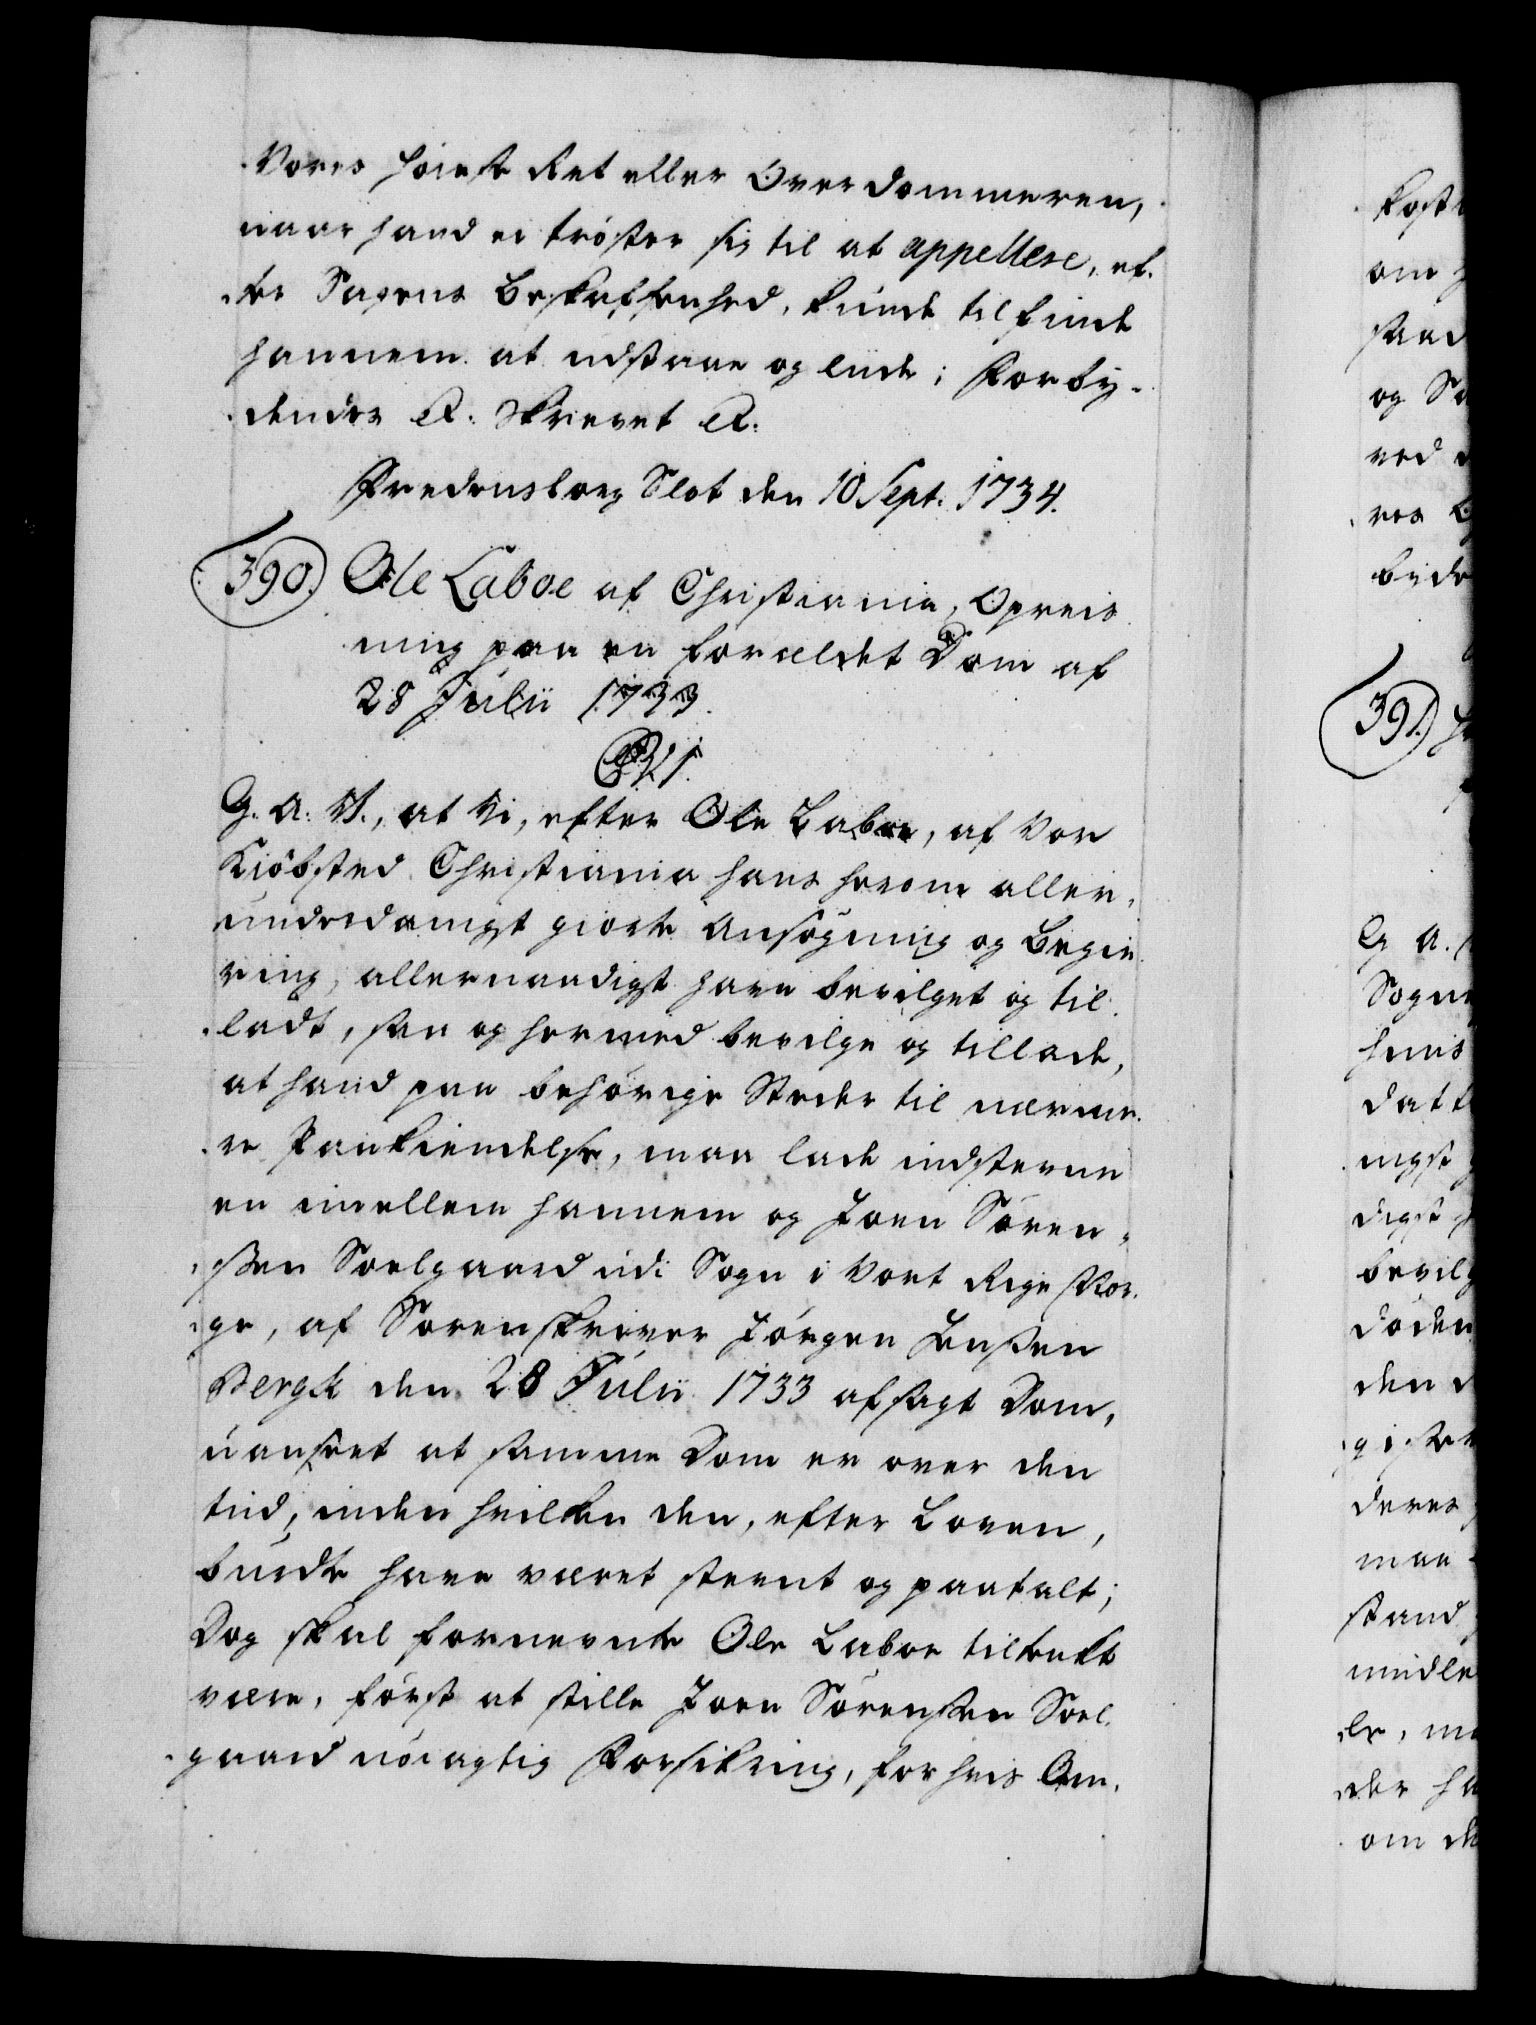 Vores Høieste Ret eller Over Dommeren,
naar hand ei trøster sig til at appellere, ef-
ter Sagens Beskaffenhed, kunde tilfinde
hannem at udstaae og liide; Forby-
dendes etc: Skrevet etc:
Fredensborg Slot den 10 Sept: 1734.
390. Ole Laboe af Christiania, Opreis
ning paa en forældet Dom af
28 Julii 1733.
G. A. V., at Vi, efter Ole Laboe, af Vor
Kiöbsted Christiania hans herom aller-
underdanigst giorte Ansøgning og Begie
ring, allernaadigst have bevilget og til
ladt, saa og hermed bevilge og tillade,
at hand paa behørige Steder til nærme-
re Paakiendelse, maa lade indstevne
en imellem hannem og Joen Sören-
ßen Soelgaard udi Sogn i Vort Rige Nor-
ge, af Sorenskriver Jörgen Lenßen
Bergk den 28 Julii 1733 afsagt Dom,
uanseet at samme Dom er over den
tiid, inden hvilken den, efter Loven,
burde have været stevnt og paatalt;
Dog skal fornevnte Ole Laboe tiltenkt
være, först at stille Joen Sörenßen Soel-
gaard nöiagtig Forsikring, for hvis Om-
390.
391.
Kost
om
staad
og
ved
bede
G. A.
Sogn
huus
datt
ngst
digst
bevilg
döden
den
deres
maa
stand
midle
der ha
om